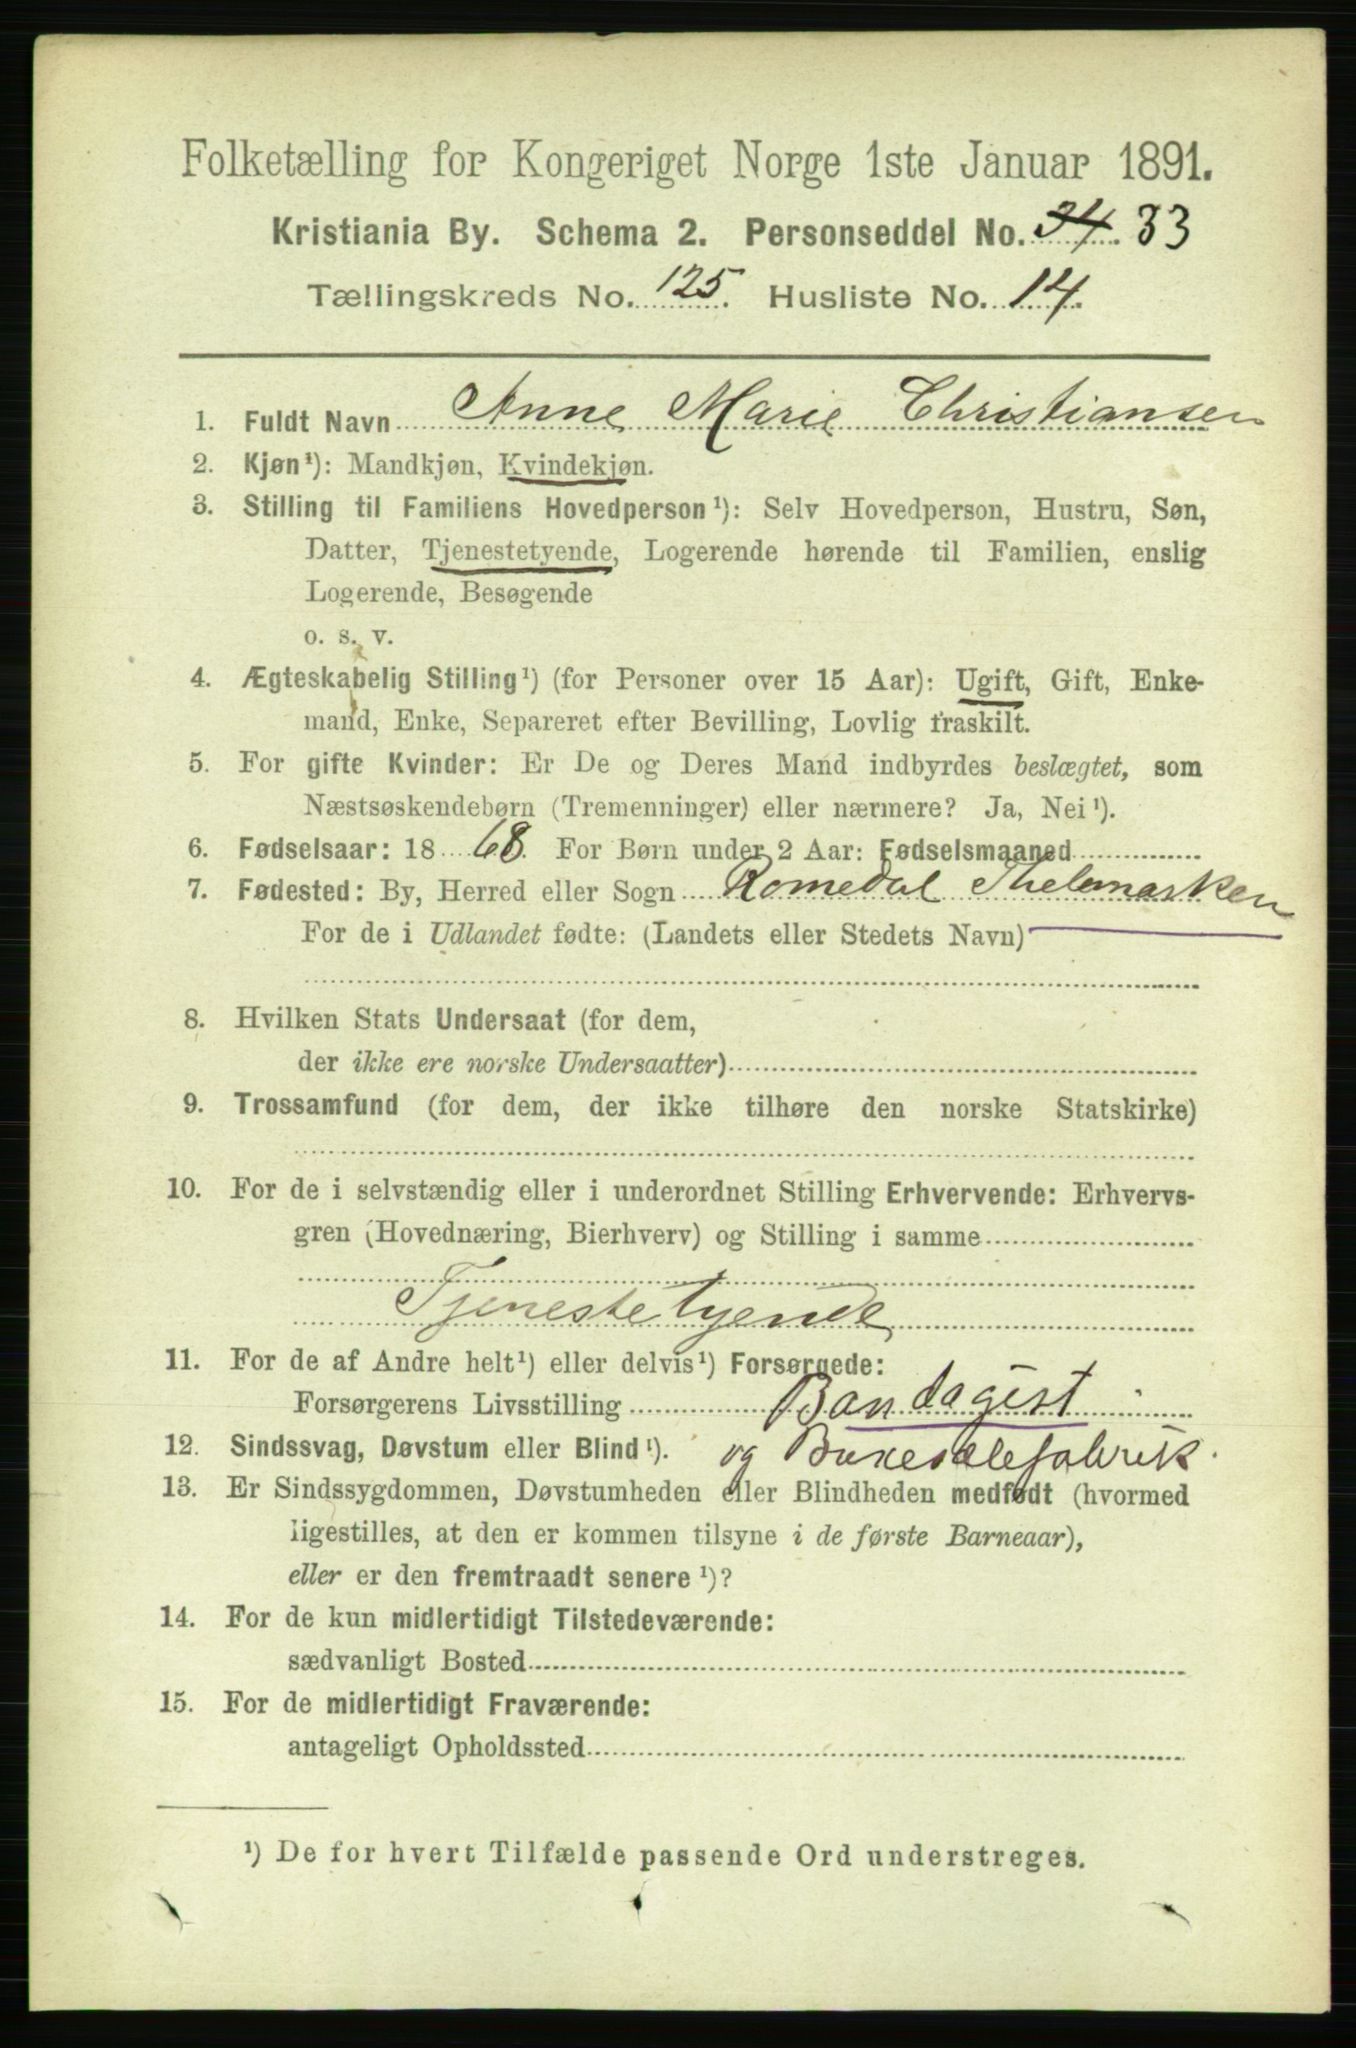 Folketælling for Kongeriget Norge 1ste Januar 1891.
Kristiania By. Schema 2. Personseddel No. 34. 33
Tællingskreds No. 125. Husliste No. 14.
1. Fuldt Navn Anne Marie Christiansen
2. Kjøn¹): Mandkjøn, Kvindekjøn.
3. Stilling til Familiens Hovedperson¹): Selv Hovedperson, Hustru, Søn,
Datter, Tjenestetyende, Logerende hørende til Familien, enslig
Logerende, Besøgende
o. s. v.
4. Ægteskabelig Stilling¹) (for Personer over 15 Aar): Ugift, Gift, Enke-
mand, Enke, Separeret efter Bevilling, Lovlig fraskilt.
5. For gifte Kvinder: Er De og Deres Mand indbyrdes beslægtet, som
Næstsøskendebørn (Tremenninger) eller nærmere? Ja, Nei¹).
6. Fødselsaar: 1868. For Børn under 2 Aar: Fødselsmaaned
7. Fødested: By, Herred eller Sogn Romedal Thelemarken
For de i Udlandet fødte: (Landets eller Stedets Navn)
8. Hvilken Stats Undersaat (for dem,
der ikke ere norske Undersaatter)
9. Trossamfund (for dem, der ikke tilhøre den norske Statskirke)
10. For de i selvstændig eller i underordnet Stilling Erhvervende: Erhvervs-
gren (Hovednæring, Bierhverv) og Stilling i samme
Tjenestetyende
11. For de af Andre helt¹) eller delvis¹) Forsørgede:
Forsørgerens Livsstilling Bandagist
12. Sindssvag, Døvstum eller Blind¹). og Buxeselefabrik.
13. Er Sindssygdommen, Døvstumheden eller Blindheden medfødt (hvormed
ligestilles, at den er kommen tilsyne i de første Barneaar),
eller er den fremtraadt senere¹)?
14. For de kun midlertidigt Tilstedeværende:
sædvanligt Bosted
15. For de midlertidigt Fraværende:
antageligt Opholdssted
¹) De for hvert Tilfælde passende Ord understreges.